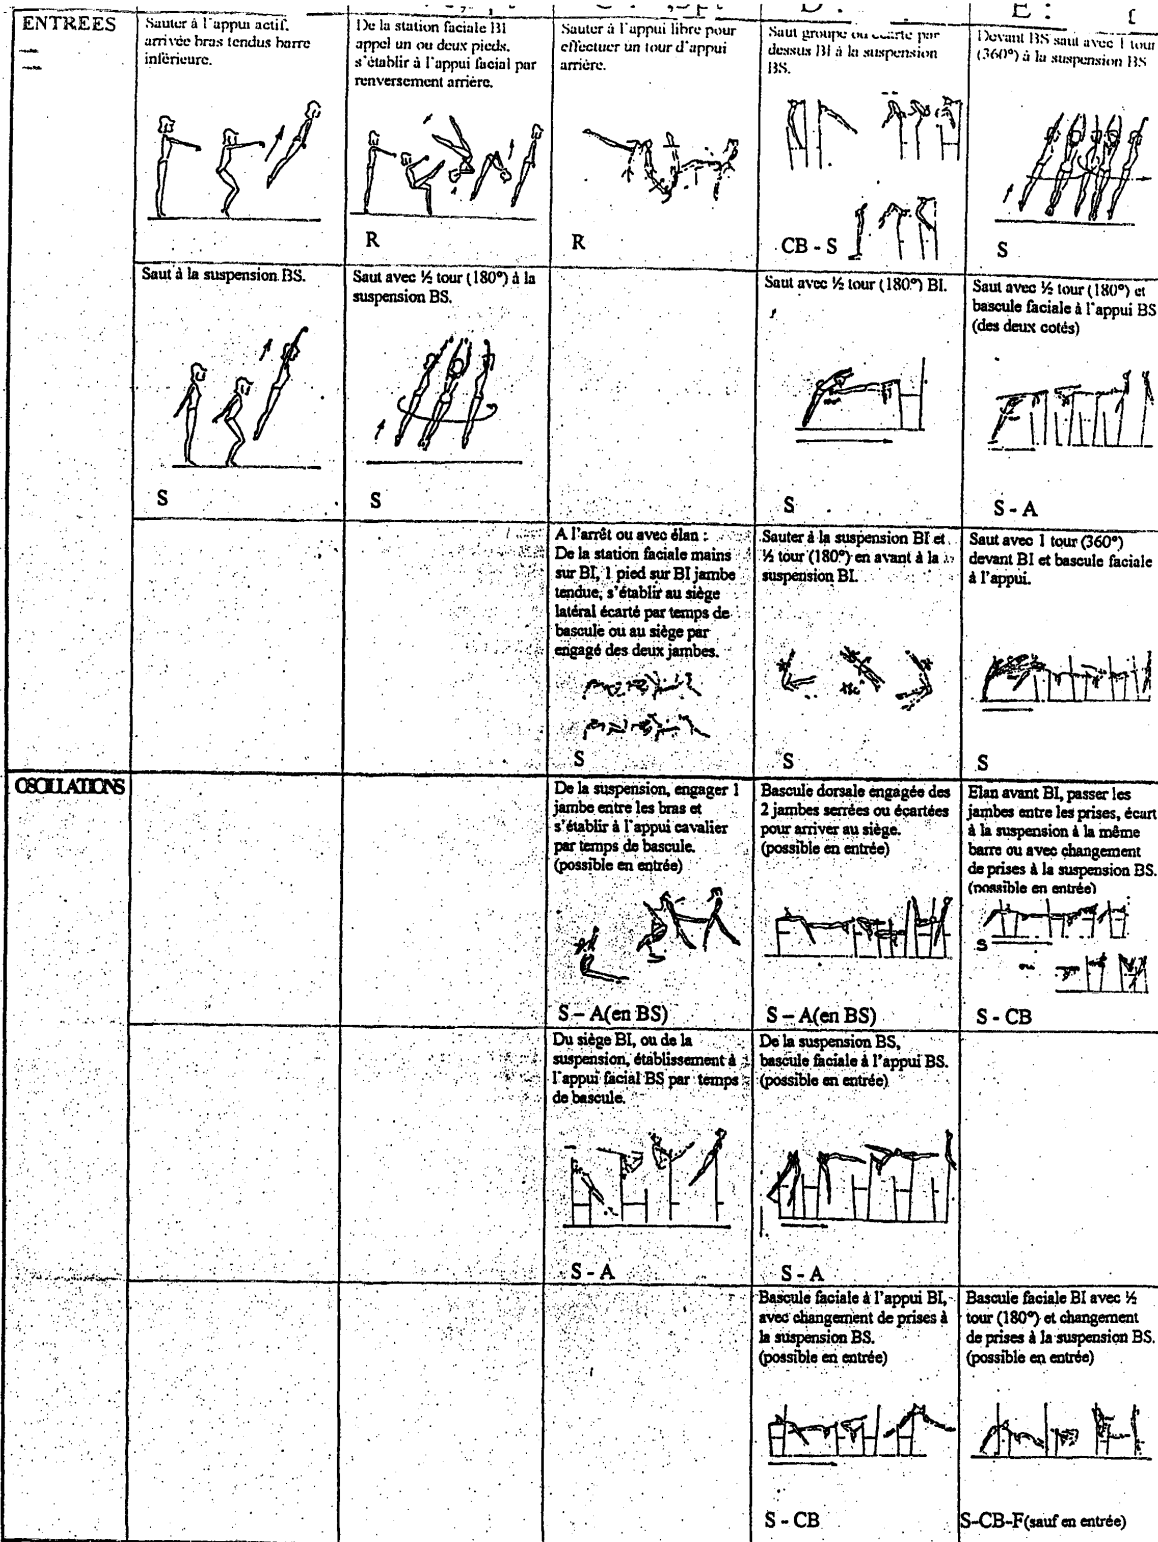 C :
D :
E :
ENTREES
Sauter à l'appui actif,
arrivée bras tendus barre
inférieure.
De la station faciale BI
appel un ou deux pieds,
s'établir à l'appui facial par
renversement arrière.
R
Sauter à l'appui libre pour
effectuer un tour d'appui
arrière.
R
Saut groupé ou écarté par
dessus BI à la suspension
BS.
CB - S
Devant BS saut avec 1 tour
(360°) à la suspension BS
S
Saut à la suspension BS.
S
Saut avec ½ tour (180°) à la
suspension BS.
S
Saut avec ½ tour (180°) BI.
S
Saut avec ½ tour (180°) et
bascule faciale à l'appui BS
(des deux cotés)
S - A
A l'arrêt ou avec élan :
De la station faciale mains
sur BI, 1 pied sur BI jambe
tendue, s'établir au siège
latéral écarté par temps de
bascule ou au siège par
engagé des deux jambes.
S
Sauter à la suspension BI et
½ tour (180°) en avant à la
suspension BI.
S
Saut avec 1 tour (360°)
devant BI et bascule faciale
à l'appui.
S
OSCILLATIONS
De la suspension, engager 1
jambe entre les bras et
s'établir à l'appui cavalier
par temps de bascule.
(possible en entrée)
S – A(en BS)
Bascule dorsale engagée des
2 jambes serrées ou écartées
pour arriver au siège.
(possible en entrée)
S – A(en BS)
Elan avant BI, passer les
jambes entre les prises, écart
à la suspension à la même
barre ou avec changement
de prises à la suspension BS.
(possible en entrée)
S
S - CB
Du siège BI, ou de la
suspension, établissement à
l'appui facial BS par temps
de bascule.
S - A
De la suspension BS,
bascule faciale à l'appui BS.
(possible en entrée)
S - A
Bascule faciale à l'appui BI,
avec changement de prises à
la suspension BS.
(possible en entrée)
S - CB
Bascule faciale BI avec ½
tour (180°) et changement
de prises à la suspension BS.
(possible en entrée)
S-CB-F(sauf en entrée)